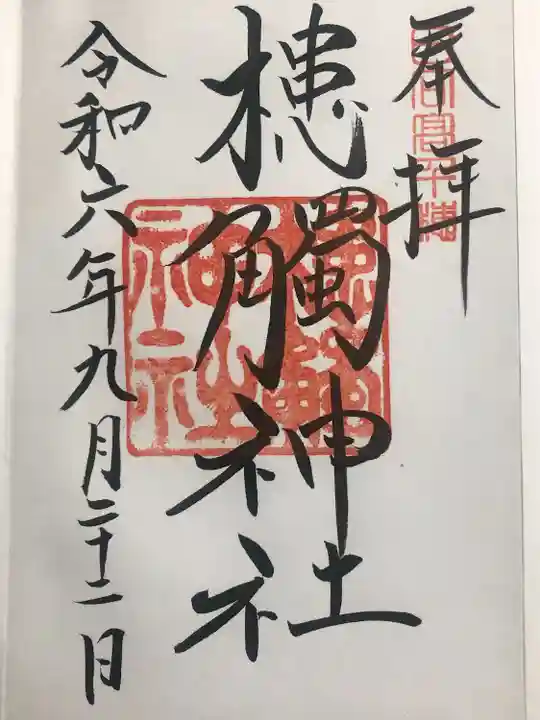 奉拝
槵觸神社
令和六年九月二十二日